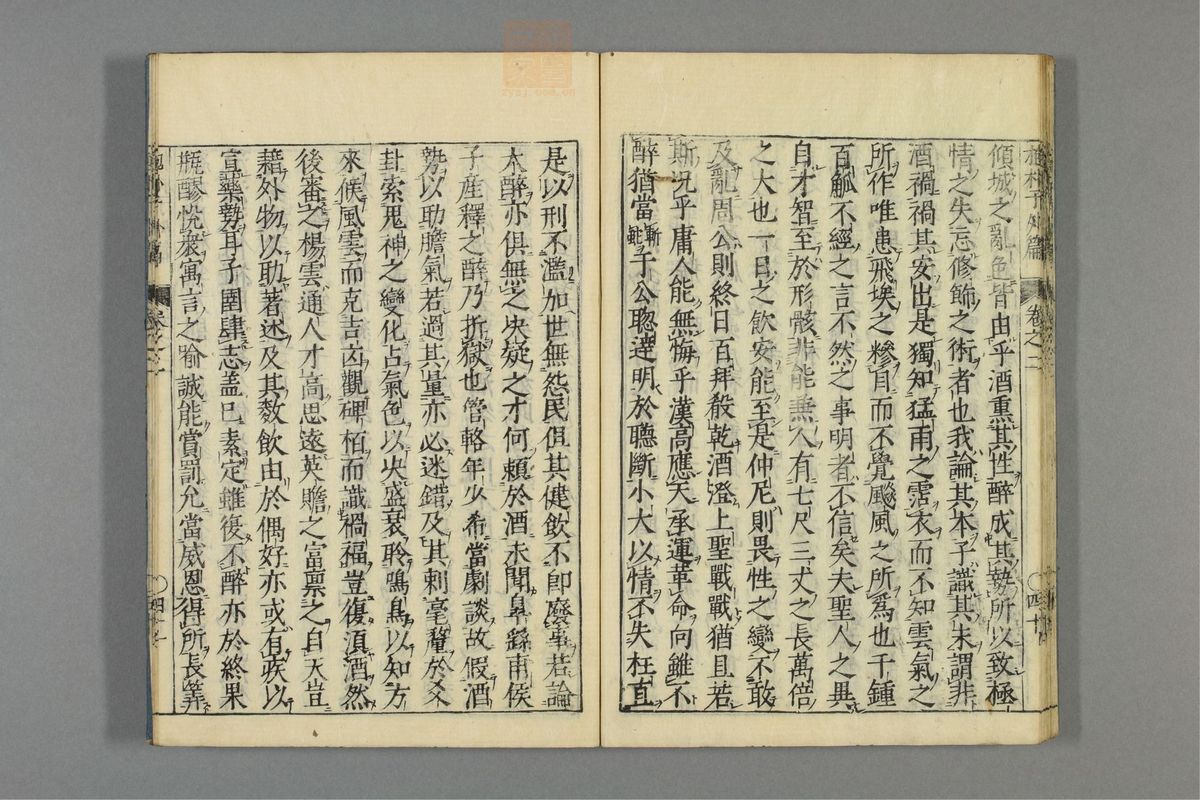 抱朴子外篇 卷之二 四十
傾城之亂色皆由乎酒熏其性醉成其勢所以致極
情之失忘修飾之術者也我論其本子識其末謂非
酒禍禍其安出是獨知猛雨之霑衣而不知雲氣之
所作唯患飛埃之糝目而不覺飈風之所爲也千鍾
百觚不經之言不然之事明者不信矣夫聖人之異
自才智至於形骸非能兼人有七尺三丈之長萬倍
之大也一日之飲安能至是仲尼則畏性之變不敢
及亂周公則終日百拜殽乾酒澄上聖戰戰猶且若
斯況乎庸人能無悔乎漢高應天承運革命向雖不
醉猶當斬蛇于公聰達明於聽斷小大以情不失枉直
是以刑不濫加世無怨民但其健飲不即廢事若論
大醉亦俱無之决疑之才何賴於酒未聞臯繇甫侯
子產釋之醉乃折獄也管輅年少希當劇談故假酒
勢以助膽氣若過其量亦必迷錯及其刺毫釐於爻
卦索鬼神之變化占氣色以决盛衰聆鳴鳥以知方
來候風雲而克吉凶觀碑栢而識禍福豈復須酒然
後審之楊雲通人才高思遠英贍之富禀之自天豈
藉外物以助著述及其數飲由於偶好亦或有疾以
宣藥勢耳子圉肆志盖已素定雖復不醉亦於終果
瓶醪悅衆寓言之喻誠能賞罰允當威恩得所長筭